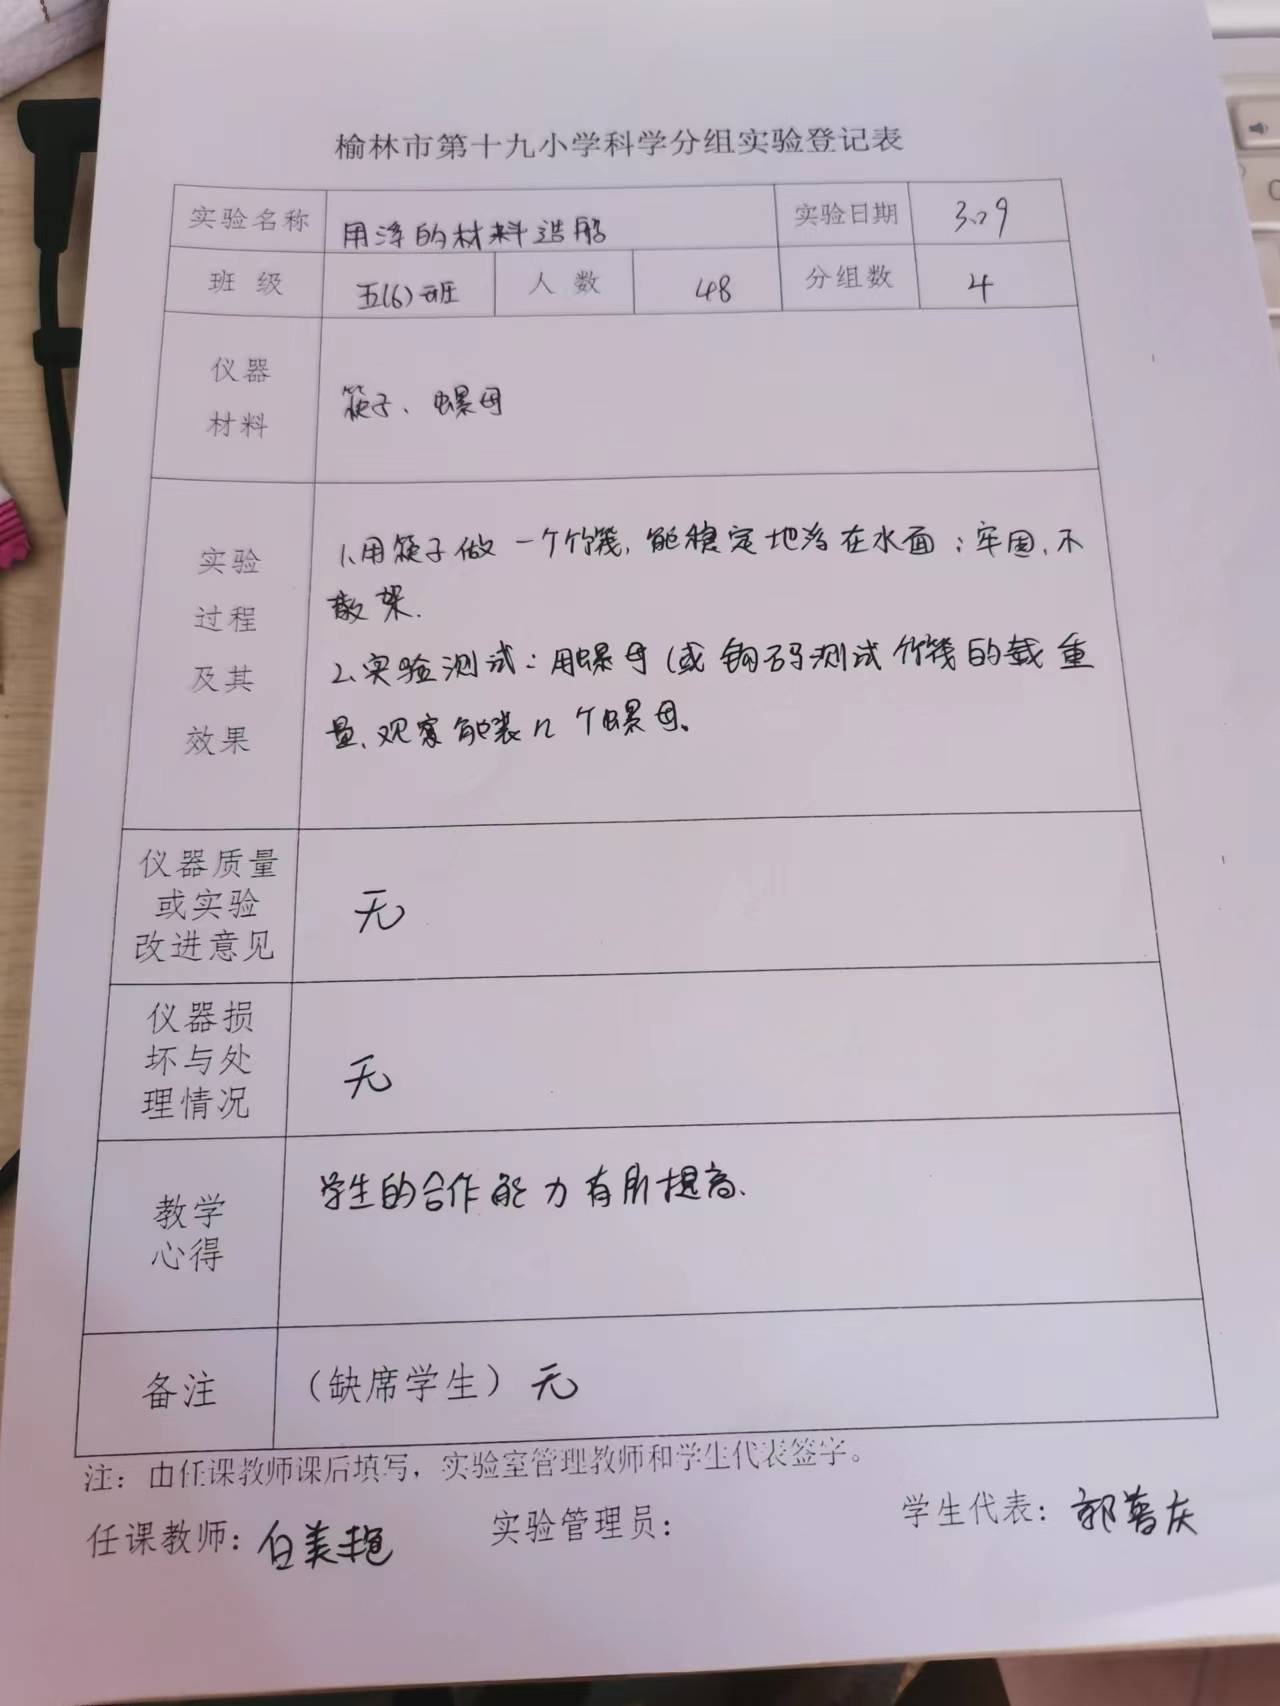 榆林市第十九小学科学分组实验登记表
实验名称 用浮的材料造船 实验日期 3.29
班 级 五(6)班 人 数 48 分组数 4
仪器
材料
筷子、螺母
实验
过程
及其
效果
1.用筷子做一个竹筏,能稳定地浮在水面;牢固,不
散架.
2.实验测试:用螺母(或钩码测试竹筏的载重
量,观察能装几个螺母。
仪器质量
或实验
改进意见
无
仪器损
坏与处
理情况
无
教学
心得
学生的合作能力有所提高.
备注 (缺席学生) 无
注:由任课教师课后填写,实验室管理教师和学生代表签字。
任课教师:白美艳 实验管理员: 学生代表:郭